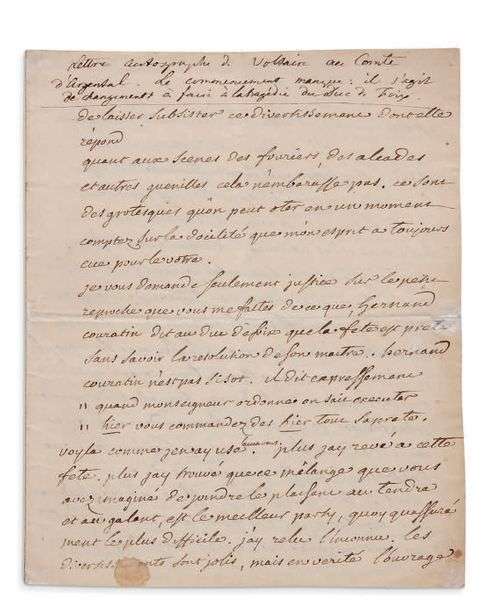 Lettre autographe de Voltaire au Comte
d'Argental. Le commencement manque: il s'agit
de changements à faire à la tragédie du Duc de Foix
de laisser subsister ce divertissement dont elle
répond
quant aux scenes des fouriers, des alcades
et autres guenilles cela n'embarasse pas. ce sont
des grotesques quon peut oter en un moment
comptez sur la docilité que mon esprit a toujours
eue pour le votre.
je vous demande seulement justice sur le petit
reproche que vous me faites de ce que, hernand
couratin dit au duc de foix que la fete est prete
sans savoir la resolution de son maitre. hernand
couratin n'est pas si sot. il dit expressement
" quand monseigneur ordonne on sait executer
" hier vous commandez des hier tout saprete.
voyla comme jen ay usé. plus jay revé a cette
fete. plus jay trouvé que ce mélange que vous
avez imaginé de joindre le plaisant au tendre
et au galant, est le meilleur party, quoy quassuré
ment le plus difficile. j'ay relu l'inconnu. les
divertissements sont jolis, mais en verité l'ouvrage